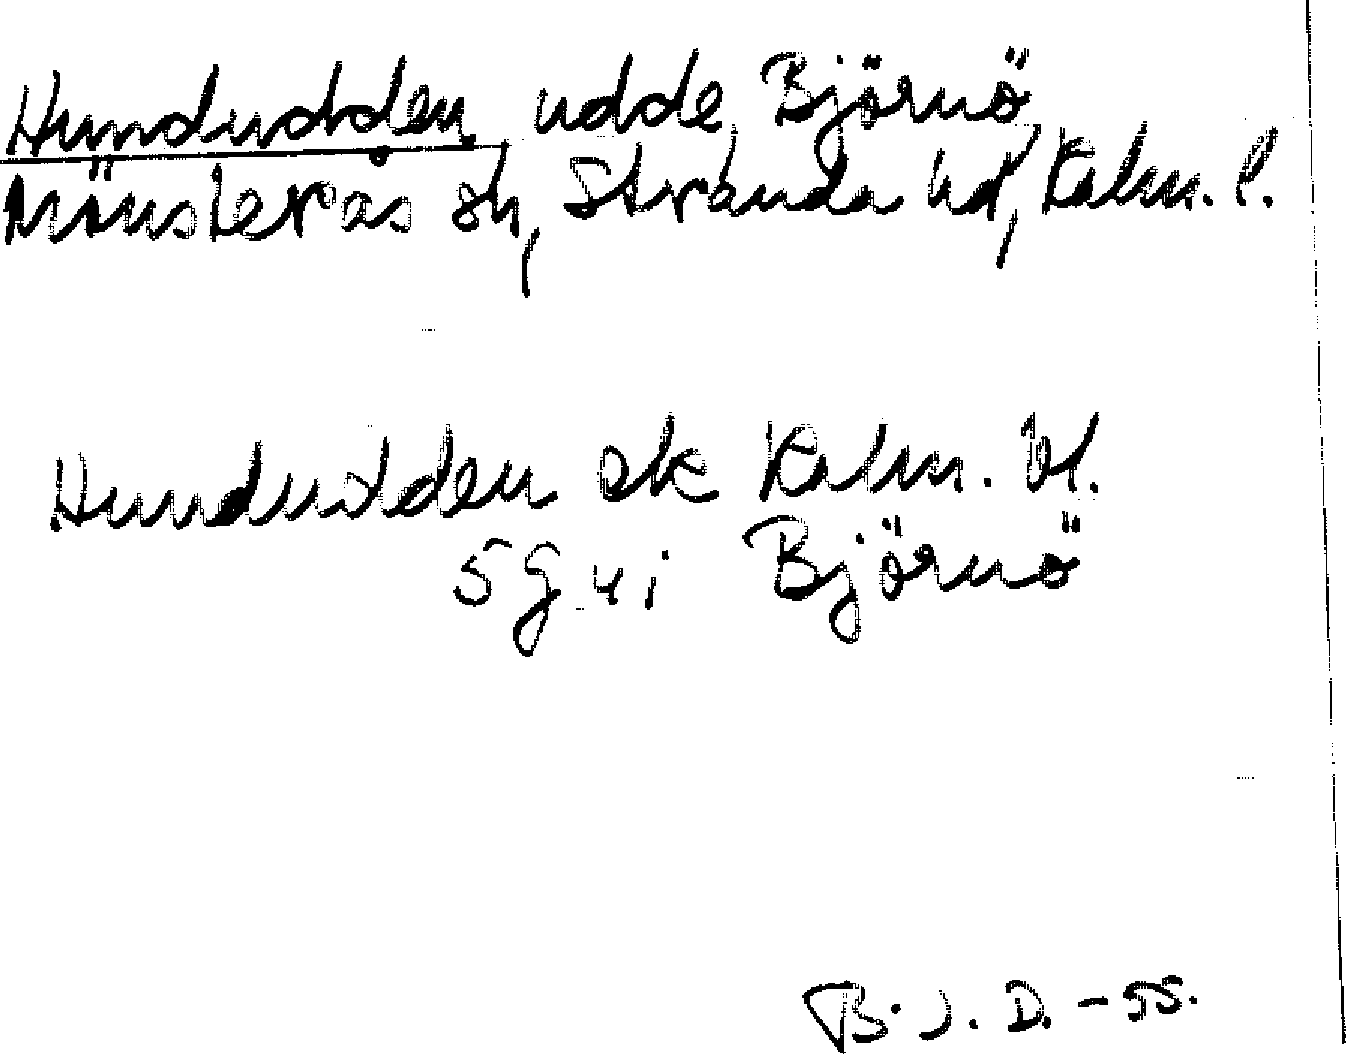 Hundudden, udde, Björnö,
Mönsterås sn, Stranda hd, Kalm. l.
Hundudden ek Kalm. bl.
5 g 4 i Björnö
B. J. D. - 55.